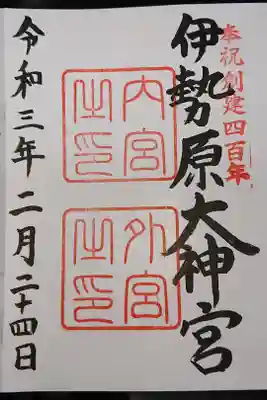 奉祝創建四百年
伊勢原大神宮
内宮
之印
外宮
之印
令和三年二月二十四日